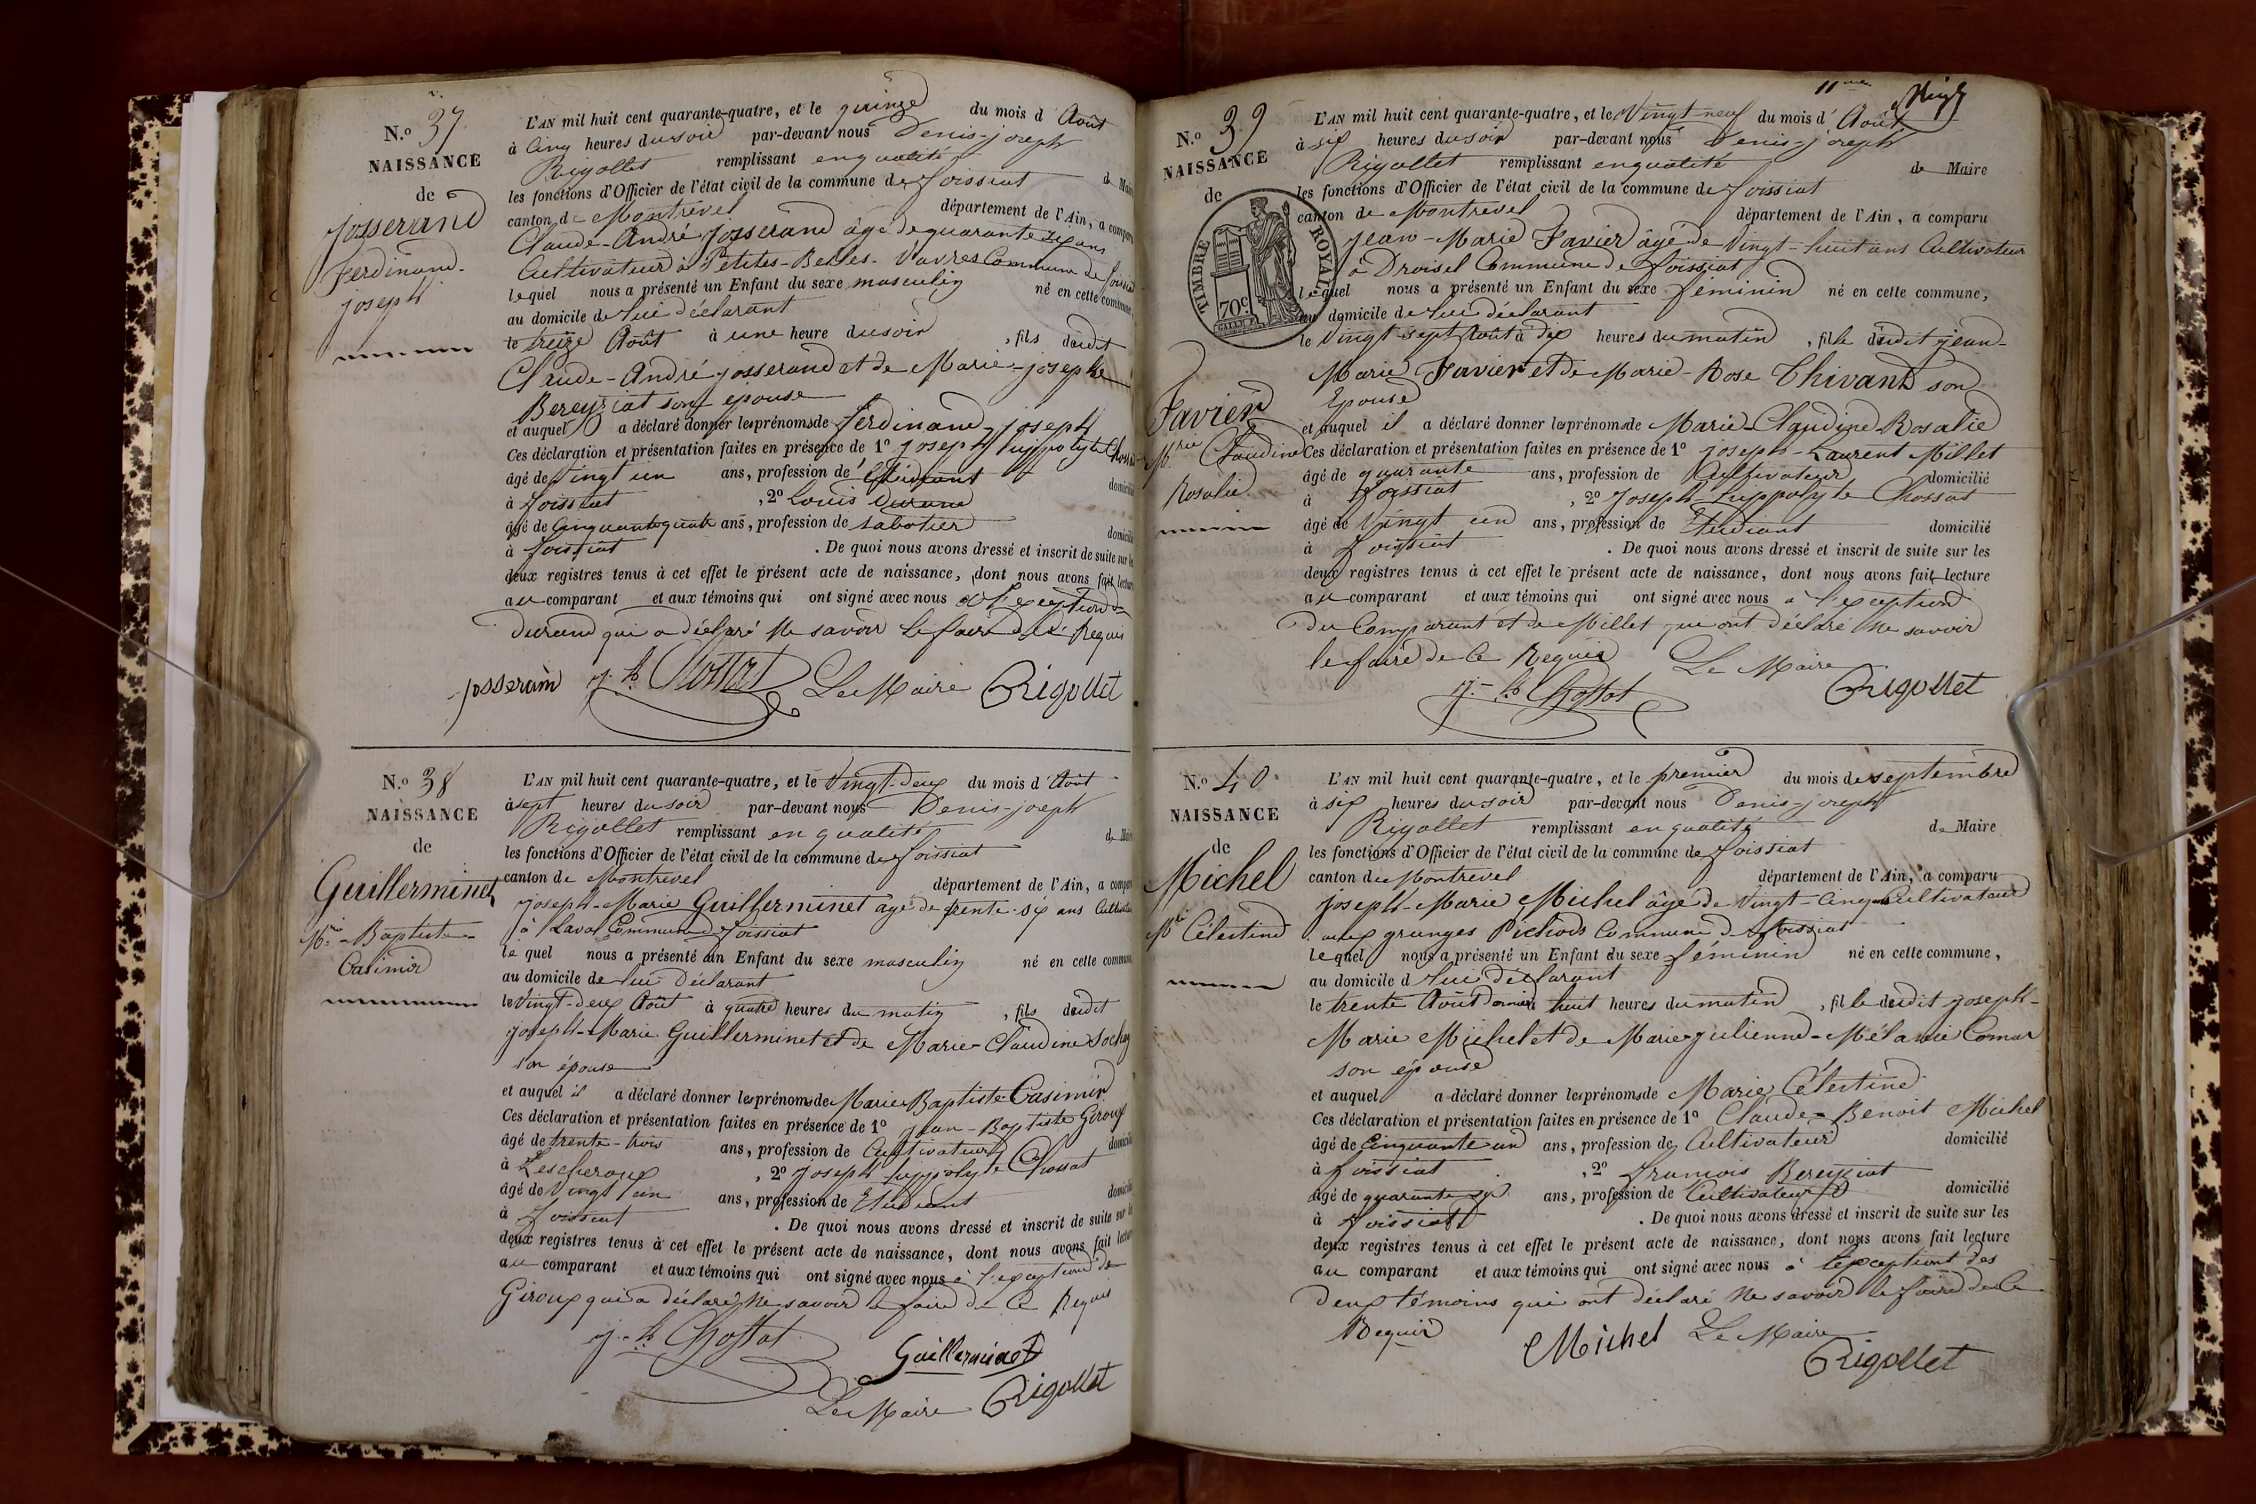 N.o 37
NAISSANCE
de
Josserand
Ferdinand-
joseph
L'AN mil huit cent quarante-quatre, et le quinze du mois d'Août
à cinq heures du soir par-devant nous Denis-joseph
Rigollet remplissant en qualité de Maire
les fonctions d'Officier de l'état civil de la commune de foissiat
canton de Montrevel département de l'Ain, a comparu
Claude-André Josserand âgé de quarante six ans
Cultivateur à Petites-Belles-Vavres Commune de foissiat
lequel nous a présenté un Enfant du sexe masculin né en cette commune,
au domicile de lui déclarant
le treize Août à une heure du soir, fils dudit
Claude-André josserand et de Marie-josephe
Bereyziat son épouse
et auquel il a déclaré donner les prénoms de ferdinand-joseph
Ces déclaration et présentation faites en présence de 1o joseph hyppolyte Chossat
âgé de vingt un ans, profession de Etudiant domicilié
à foissiat, 2o Louis Durand
âgé de cinquante quatre ans, profession de sabotier domicilié
à foissiat. De quoi nous avons dressé et inscrit de suite sur les
deux registres tenus à cet effet le présent acte de naissance, dont nous avons fait lecture
au comparant et aux témoins qui ont signé avec nous à l'exception de
Durand qui a déclaré ne savoir le faire de ce Requis
josseran j. h. Chossat Le Maire Rigollet
N.o 38
NAISSANCE
de
Guillerminet
M.ie-Baptiste-
Casimir
L'AN mil huit cent quarante-quatre, et le Vingt-deux du mois d'Août
à sept heures du soir par-devant nous Denis-joseph
Rigollet remplissant en qualité de Maire
les fonctions d'Officier de l'état civil de la commune de foissiat
canton de Montrevel département de l'Ain, a comparu
joseph-Marie Guillerminet âgé de trente-six ans Cultivateur
à Laval Commune de foissiat
lequel nous a présenté un Enfant du sexe masculin né en cette commune
au domicile de lui Déclarant
le Vingt-deux Août à quatre heures du matin, fils dudit
joseph-Marie Guillerminet et de Marie-Claudine Sochay
son épouse
et auquel il a déclaré donner les prénoms de Marie-Baptiste-Casimir
Ces déclaration et présentation faites en présence de 1o jean-Baptiste Giroux
âgé de trente-trois ans, profession de Cultivateur domicilié
à Lescheroux, 2o joseph hyppolyte Chossat
âgé de Vingt un ans, profession de Etudiant domicilié
à foissiat. De quoi nous avons dressé et inscrit de suite sur les
deux registres tenus à cet effet le présent acte de naissance, dont nous avons fait lecture
au comparant et aux témoins qui ont signé avec nous à l'exception de
Giroux qui a déclaré ne savoir le faire de ce Requis
j. h. Chossat
Guillerminet
Le Maire Rigollet
11me
N.o 39
NAISSANCE
de
TIMBRE ROYAL
70 c.
Favier
M.rie Claudine
Rosalie
L'AN mil huit cent quarante-quatre, et le Vingt neuf du mois d'Août
à six heures du soir par-devant nous Denis-joseph
Rigollet remplissant en qualité de Maire
les fonctions d'Officier de l'état civil de la commune de foissiat
canton de Montrevel département de l'Ain, a comparu
jean-Marie Favier âgé de Vingt-huit ans Cultivateur
à Droisel Commune de foissiat
lequel nous a présenté un Enfant du sexe féminin né en cette commune,
au domicile de lui déclarant
le Vingt-sept Août à dix heures du matin, fille dudit jean-
Marie Favier et de Marie-Rose Thivant son
Epouse
et auquel il a déclaré donner les prénoms de Marie-Claudine-Rosalie
Ces déclaration et présentation faites en présence de 1o joseph-Laurent Millet
âgé de quarante ans, profession de Cultivateur domicilié
à foissiat, 2o Joseph hyppolyte Chossat
âgé de Vingt un ans, profession de Etudiant domicilié
à foissiat. De quoi nous avons dressé et inscrit de suite sur les
deux registres tenus à cet effet le présent acte de naissance, dont nous avons fait lecture
au comparant et aux témoins qui ont signé avec nous à l'exception
du Comparant et de Millet qui ont déclaré ne savoir
le faire de ce Requis Le Maire
j. h. Chossat Rigollet
N.o 40
NAISSANCE
de
Michel
M.ie Célestine
L'AN mil huit cent quarante-quatre, et le premier du mois de septembre
à six heures du soir par-devant nous Denis-joseph
Rigollet remplissant en qualité de Maire
les fonctions d'Officier de l'état civil de la commune de foissiat
canton de Montrevel département de l'Ain, a comparu
joseph-Marie Michel âgé de Vingt-cinq Cultivateur
aux granges Pichods Commune de foissiat
lequel nous a présenté un Enfant du sexe féminin né en cette commune,
au domicile d lui déclarant
le trente Août dernier à huit heures du matin, fille dudit joseph-
Marie Michel et de Marie-julienne-Mélanie Comar
son épouse
et auquel a déclaré donner les prénoms de Marie Célestine
Ces déclaration et présentation faites en présence de 1o Claude-Benoit Michel
âgé de Cinquante un ans, profession de Cultivateur domicilié
à foissiat, 2o francois Bereyziat
âgé de quarante six ans, profession de Cultivateur domicilié
à foissiat. De quoi nous avons dressé et inscrit de suite sur les
deux registres tenus à cet effet le présent acte de naissance, dont nous avons fait lecture
au comparant et aux témoins qui ont signé avec nous à l'exception des
deux témoins qui ont déclaré ne savoir le faire de ce
Requis Michel Le Maire
Rigollet